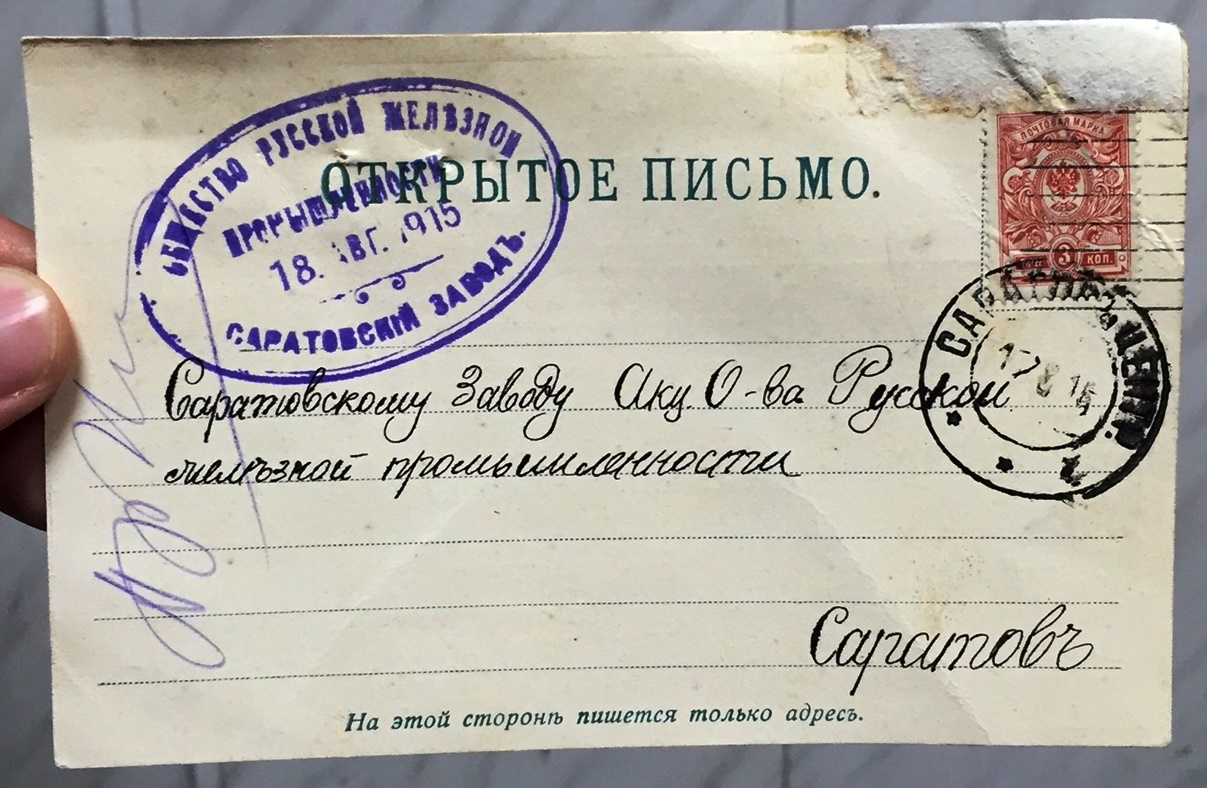 ОБЩЕСТВО РУССКОЙ ЖЕЛѢЗНОЙ
ПРОМЫШЛЕННОСТИ
18. АВГ. 1915
САРАТОВСКІЙ ЗАВОДЪ.
ОТКРЫТОЕ ПИСЬМО.
ПОЧТОВАЯ МАРКА
3 КОП.
САРАТОВЪ
17 8 15
Саратовскому Заводу Акц. О-ва Русской
желѣзной промышленности
Саратовъ
На этой сторонѣ пишется только адресъ.